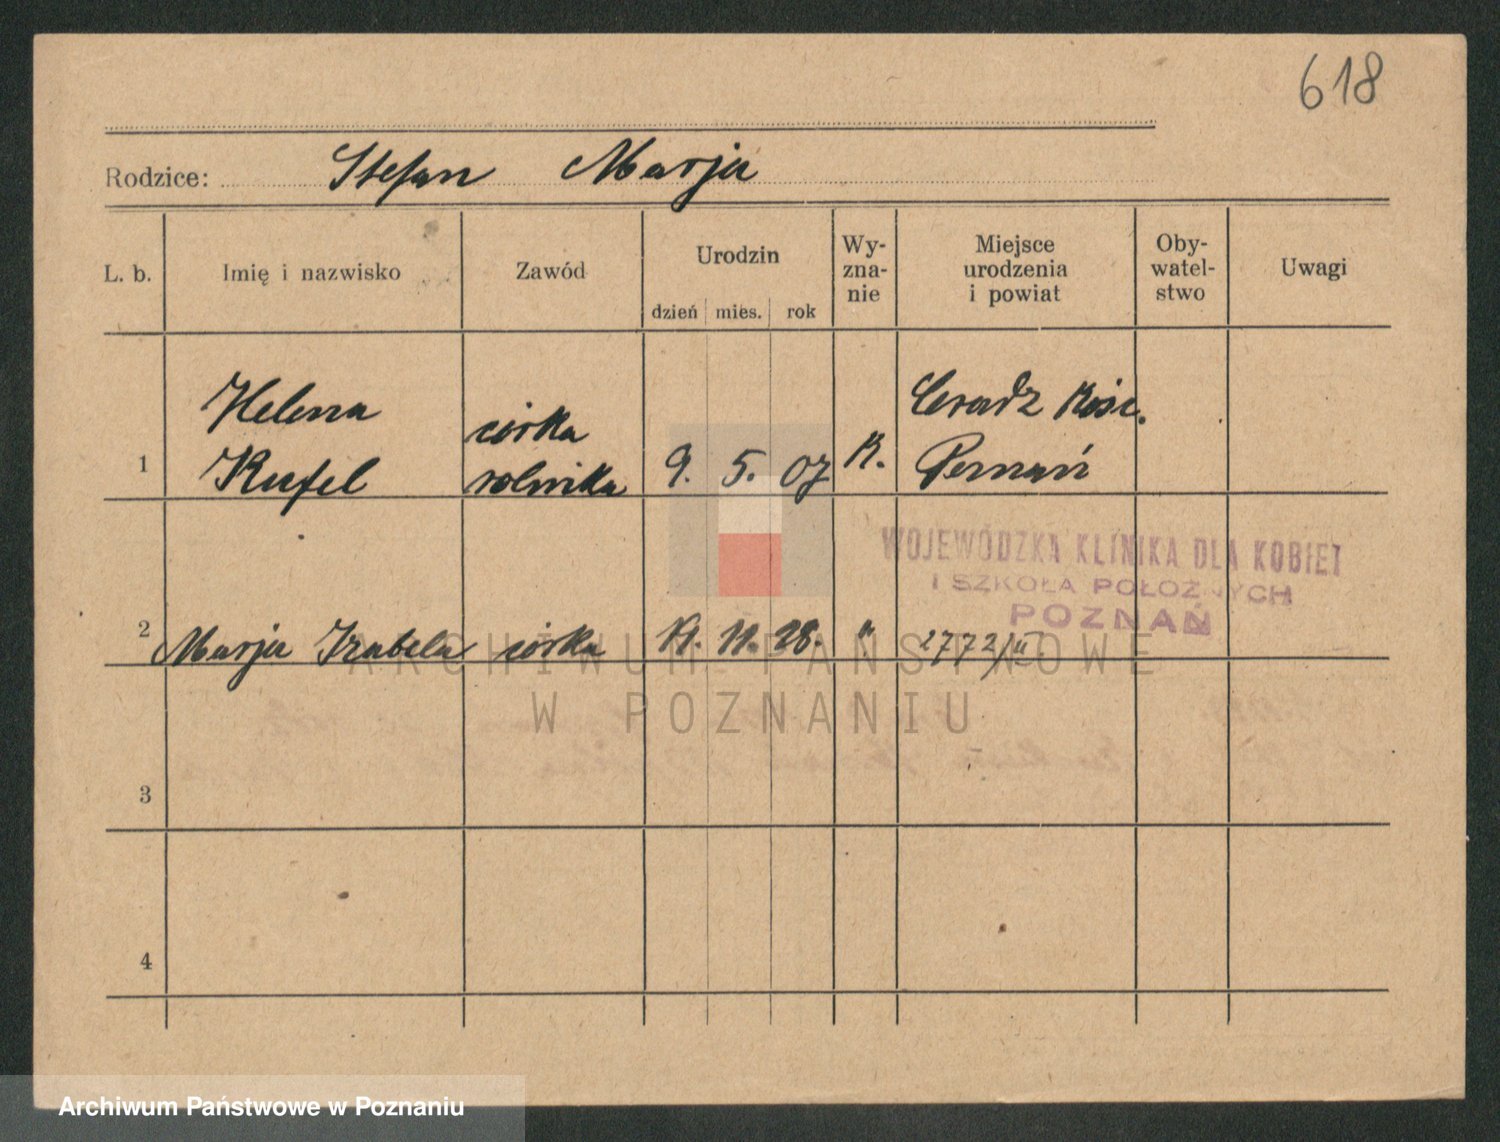 618
Rodzice: Stefan Marja
L. b. Imię i nazwisko Zawód Urodzin Wy-zna-nie Miejsce urodzenia i powiat Oby-watel-stwo Uwagi
dzień mies. rok
Helena córka Ceradz Kośc.
1 Kufel rolnika 9. 5. 07 K. Poznań
WOJEWÓDZKA KLINIKA DLA KOBIET
I SZKOŁA POŁOŻNYCH
POZNAŃ
2 Marja Izabela córka 11. 28. " 2772/II
ARCHIWUM PAŃSTWOWE
W POZNANIU
3
4
Archiwum Państwowe w Poznaniu